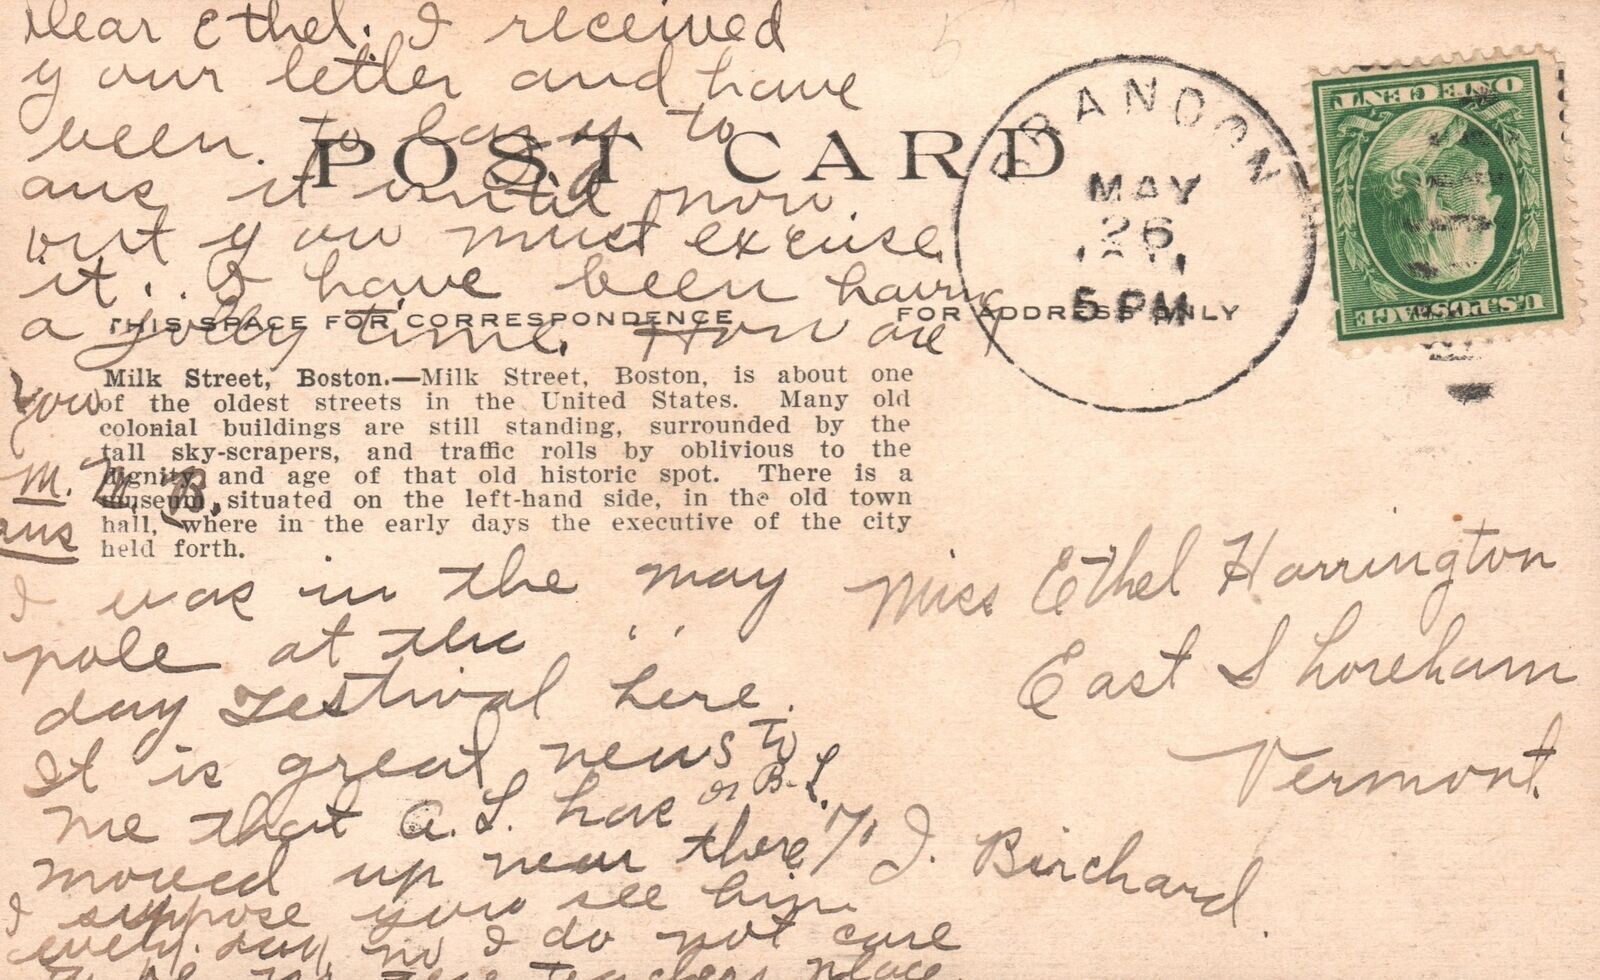 Dear Ethel. I received
your letter and have
been. to busy to
ans it until now.
but you must excuse
it. I have been having
a jolly time. How are
you
M. M. B.
ans
POST CARD
THIS SPACE FOR CORRESPONDENCE
FOR ADDRESS ONLY
Milk Street, Boston.—Milk Street, Boston, is about one
of the oldest streets in the United States. Many old
colonial buildings are still standing, surrounded by the
tall sky-scrapers, and traffic rolls by oblivious to the
dignity and age of that old historic spot. There is a
museum situated on the left-hand side, in the old town
hall, where in the early days the executive of the city
held forth.
I was in the may
pole at the " "
day Festival here.
It is great news to
me that A. L. has or B. L.
moved up near there
I suppose you see him
every day no I do not care
teachers place
BRANDON
MAY
26
5 PM
ONE CENT
U.S. POSTAGE
Miss Ethel Harrington
East Shoreham
Vermont.
% J. Birchard.